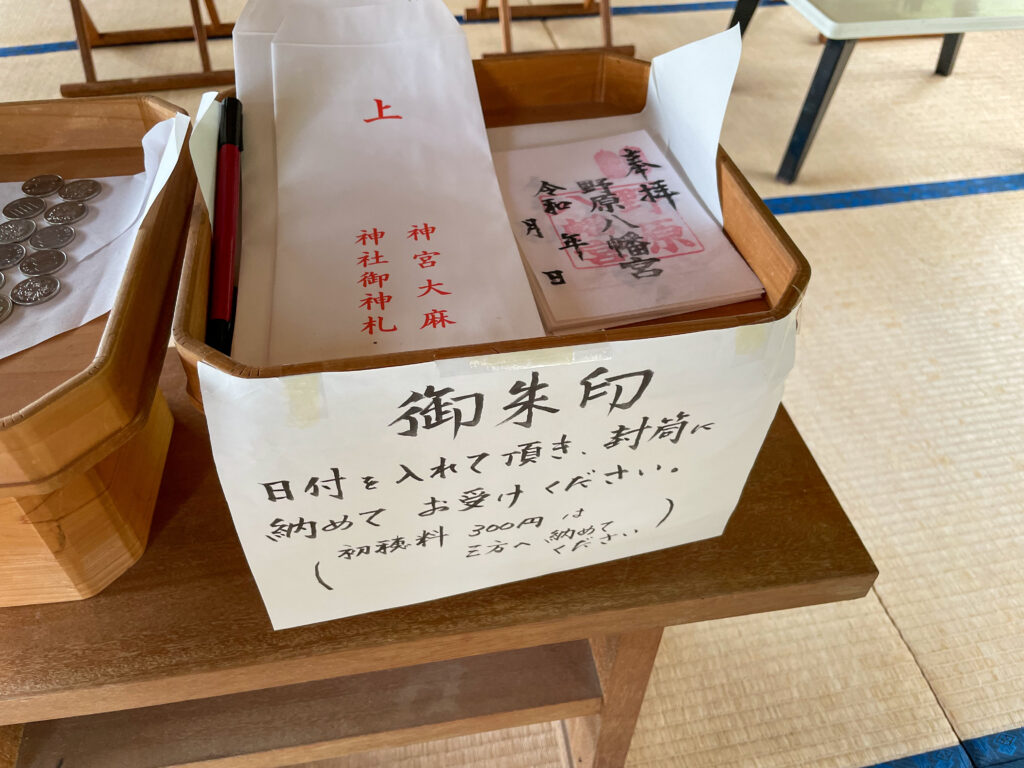 上
神宮大麻
神社御神札
奉拝
野原八幡宮
令和 年
月 日
御朱印
日付を入れて頂き、封筒に
納めてお受けください。
(初穂料 300円は
三方へ納めて
ください)